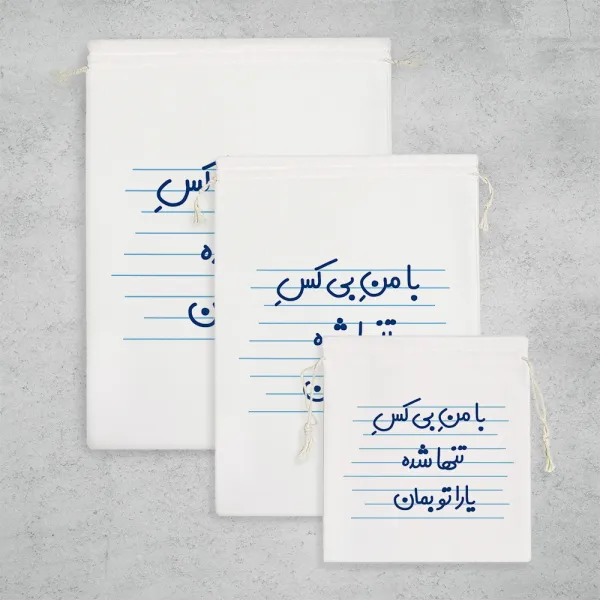 با منِ بی کسِ
تنها شده
با منِ بی کسِ
تنها شده
یارا تو بمان